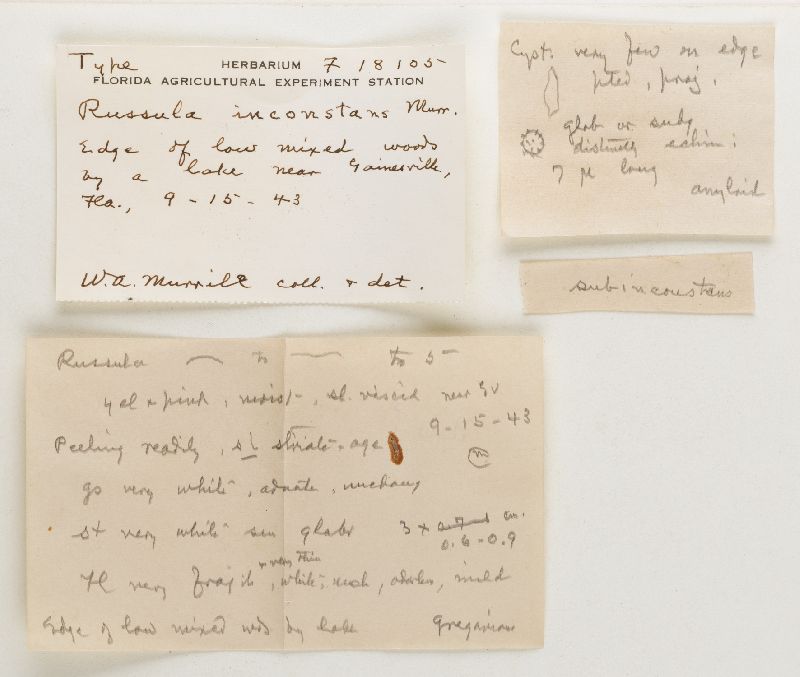 Type HERBARIUM F 18105
FLORIDA AGRICULTURAL EXPERIMENT STATION
Russula inconstans Murr.
Edge of low mixed woods
by a lake near Gainesville,
Fla., 9-15-43
W.A. Murrill coll. & det.
Cyst. very few on edge
pted, proj.
glob or subg
distinctly echin;
7 µ long
amyloid
subinconstans
Russula to to 5
yel & pink, moist, sl. viscid near GV
9-15-43
Peeling readily, sl striate-age
m
gs very white, adnate, unchang
st very white sm glabr 3 x cm.
0.6-0.9
& very thin
Fl very fragile, white, unch, odorless, mild
Edge of low mixed wds by lake Gregarious